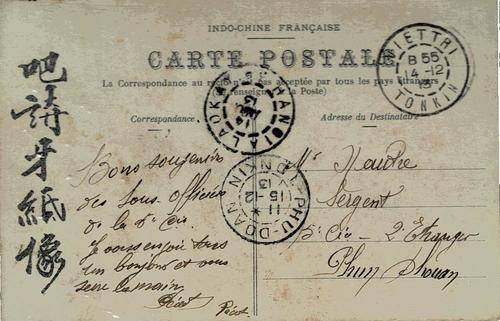 INDO-CHINE FRANÇAISE
CARTE POSTALE
La Correspondance au recto n'est pas acceptée par tous les pays étrangers
(Se renseigner à la Poste)
Correspondance
Adresse du Destinataire
VIETTRI
8 55
14-12
13
TONKIN
HANOI A LAOKAY
PHU-DOAN
11
15-12
13
TONKIN
吧請牙紙像
Bons souvenirs
des Sous Officiers
de la
Cie.
envoie tous
un bonjour et vous
serre la main
Sergent
Cie - 2e Etranger
Phu Doan